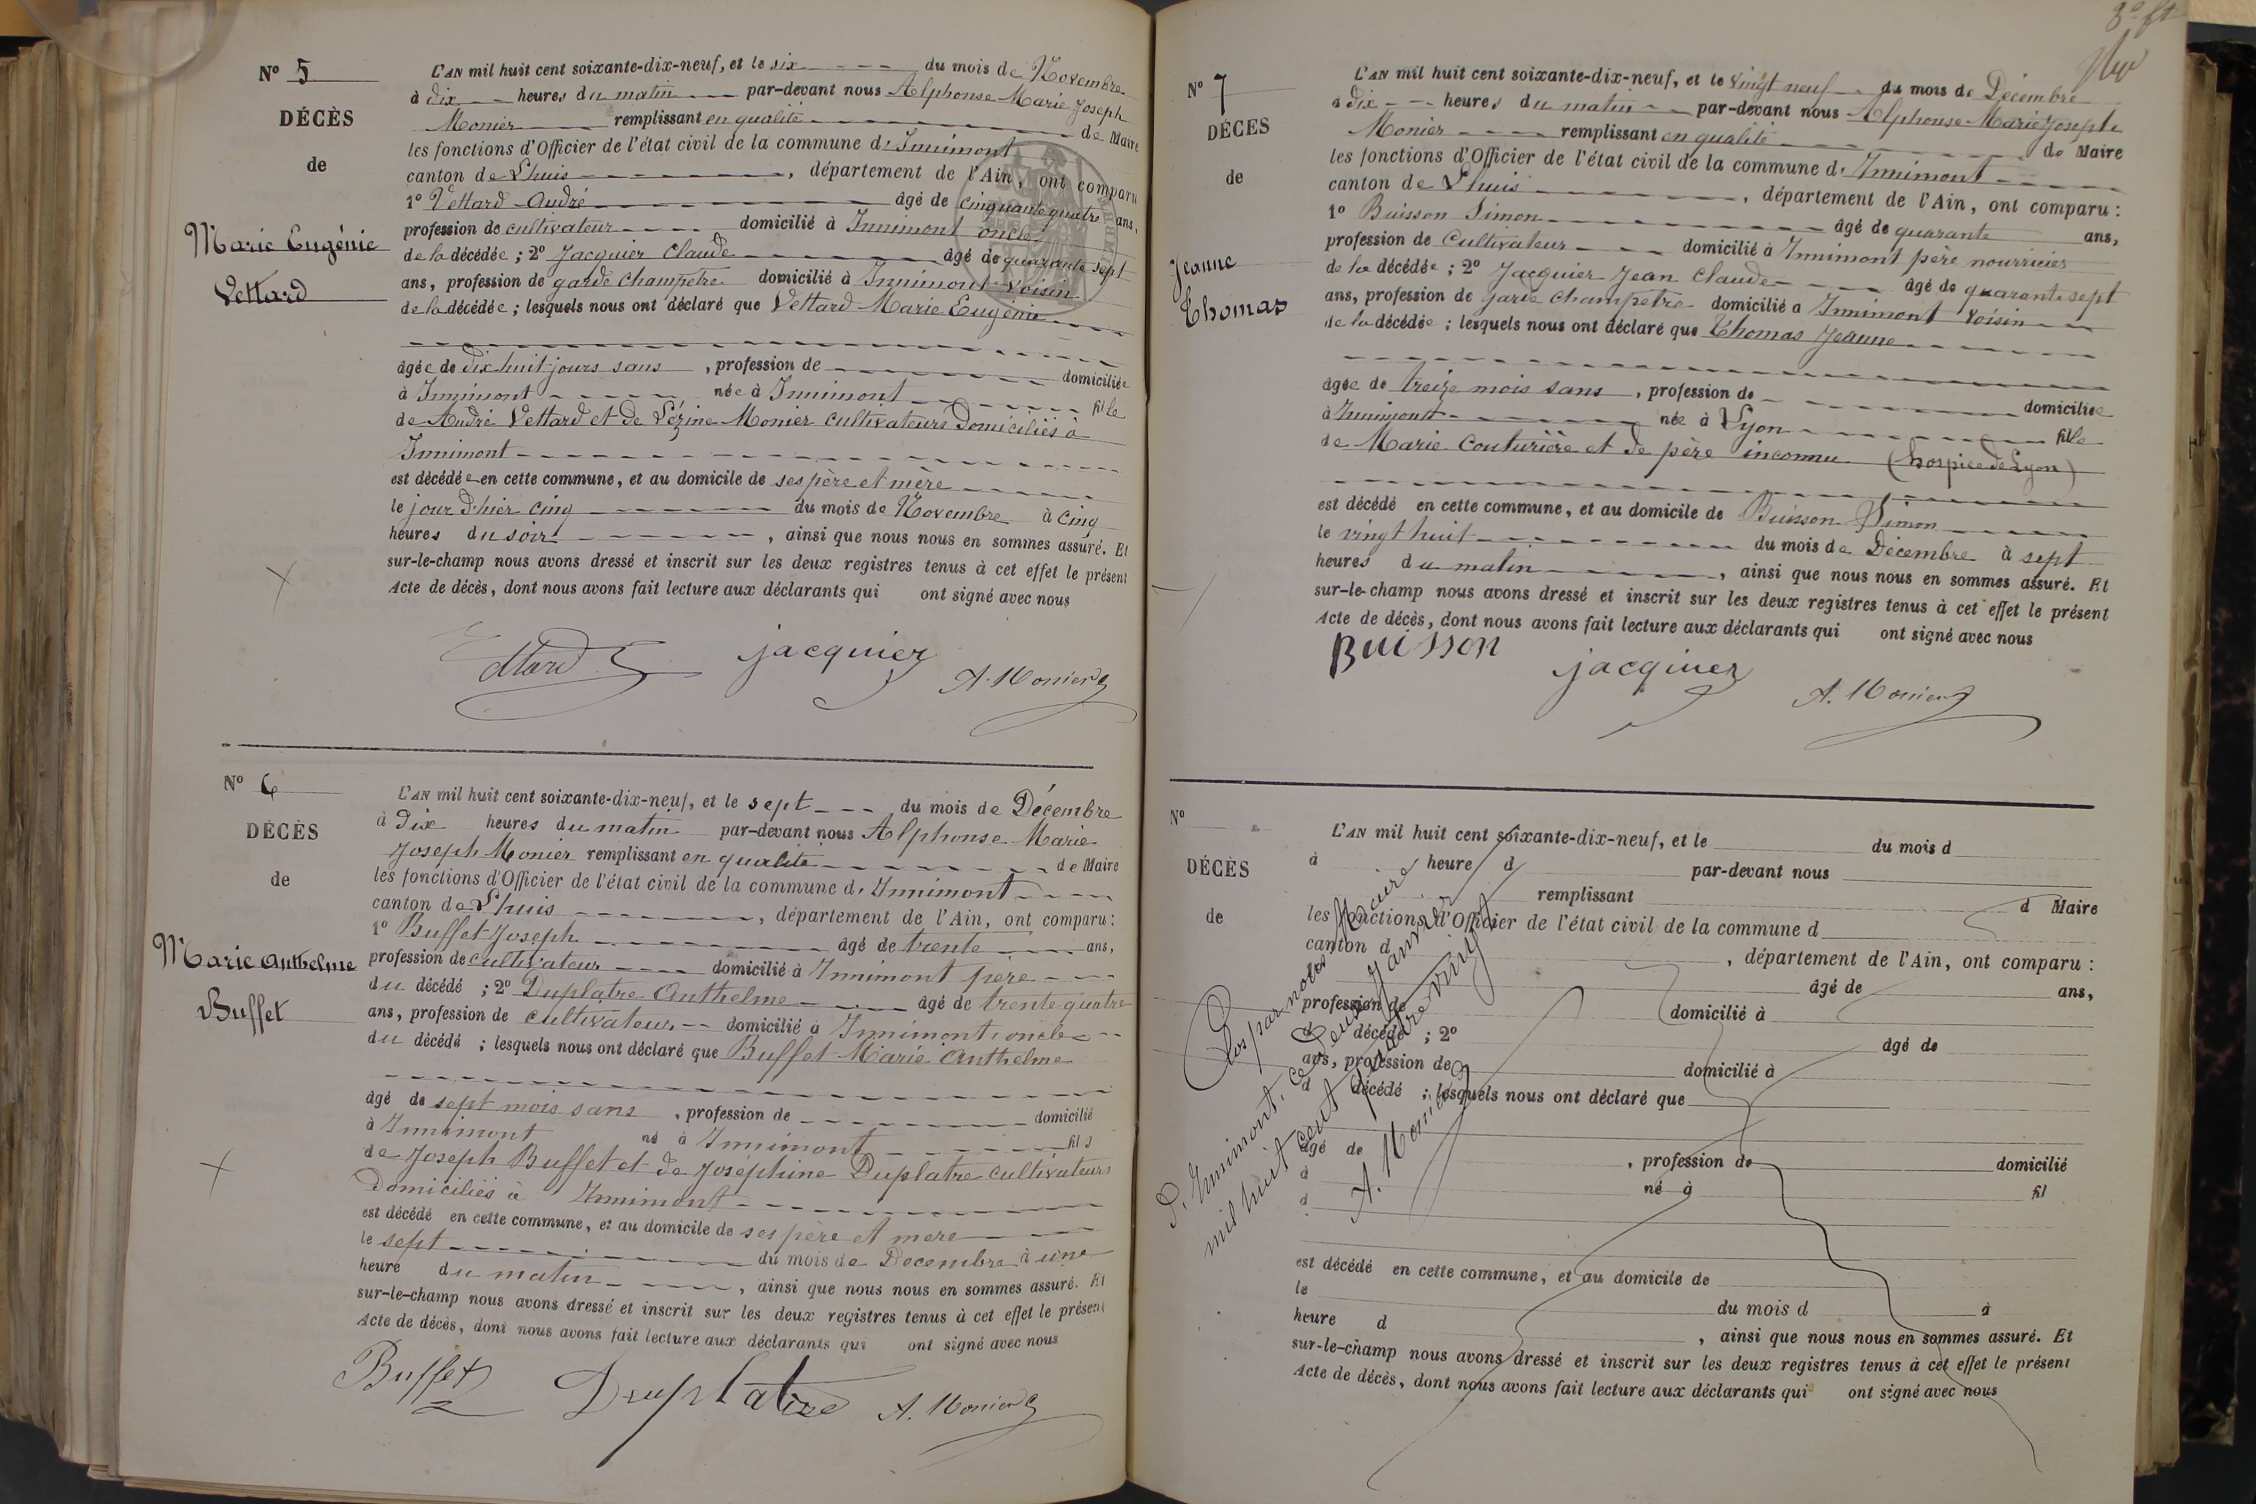 N° 5
DÉCÈS
de
Marie Eugénie
Vettard
L'AN mil huit cent soixante-dix-neuf, et le six du mois de Novembre
à dix heures du matin par-devant nous Alphonse Marie Joseph
Monier remplissant en qualité de Maire
les fonctions d'Officier de l'état civil de la commune d'Innimont
canton de Lhuis, département de l'Ain, ont comparu
1° Vettard André âgé de cinquante quatre ans,
profession de cultivateur domicilié à Innimont oncle
de la décédée ; 2° Jacquier Claude âgé de quarante sept
ans, profession de garde champetre domicilié à Innimont voisin
de la décédée ; lesquels nous ont déclaré que Vettard Marie Eugénie
âgée de dix huit jours sans, profession de domiciliée
à Innimont née à Innimont fille
de André Vettard et de Lézine Monier cultivateurs domiciliés à
Innimont
est décédée en cette commune, et au domicile de ses père et mère
le jour d'hier cinq du mois de Novembre à cinq
heures du soir, ainsi que nous nous en sommes assuré. Et
sur-le-champ nous avons dressé et inscrit sur les deux registres tenus à cet effet le présent
Acte de décès, dont nous avons fait lecture aux déclarants qui ont signé avec nous
jacquier
A. Monier
N° 6
DÉCÈS
de
Marie Anthelme
Buffet
L'AN mil huit cent soixante-dix-neuf, et le sept du mois de Décembre
à Dix heures du matin par-devant nous Alphonse Marie
Joseph Monier remplissant en qualité de Maire
les fonctions d'Officier de l'état civil de la commune d'Innimont
canton de Lhuis, département de l'Ain, ont comparu :
1° Buffet Joseph âgé de trente ans,
profession de cultivateur domicilié à Innimont père
du décédé ; 2° Duplatre Anthelme âgé de trente quatre
ans, profession de cultivateur domicilié à Innimont oncle
du décédé ; lesquels nous ont déclaré que Buffet Marie Anthelme
âgé de sept mois sans, profession de domicilié
à Innimont né à Innimont fils
de Joseph Buffet et de Joséphine Duplatre cultivateurs
domiciliés à Innimont
est décédé en cette commune, et au domicile de ses père et mere
le sept du mois de Decembre à une
heure du matin, ainsi que nous nous en sommes assuré. Et
sur-le-champ nous avons dressé et inscrit sur les deux registres tenus à cet effet le présent
Acte de décès, dont nous avons fait lecture aux déclarants qui ont signé avec nous
Buffet
Duplatre
A. Monier
N° 7
DÉCÈS
de
Jeanne
Thomas
L'AN mil huit cent soixante-dix-neuf, et le vingt neuf du mois de Décembre
à dix heures du matin par-devant nous Alphonse Marie Joseph
Monier remplissant en qualité de Maire
les fonctions d'Officier de l'état civil de la commune d'Innimont
canton de Lhuis, département de l'Ain, ont comparu :
1° Buisson Simon âgé de quarante ans,
profession de Cultivateur domicilié à Innimont père nourricier
de la décédée ; 2° Jacquier Jean Claude âgé de quarante sept
ans, profession de garde champetre domicilié à Innimont voisin
de la décédée ; lesquels nous ont déclaré que Thomas Jeanne
âgée de treize mois sans, profession de domiciliée
à Innimont née à Lyon fille
de Marie couturière et de père inconnu (hospice de Lyon)
est décédé en cette commune, et au domicile de Buisson Simon
le vingt huit du mois de Décembre à sept
heures du matin, ainsi que nous nous en sommes assuré. Et
sur-le-champ nous avons dressé et inscrit sur les deux registres tenus à cet effet le présent
Acte de décès, dont nous avons fait lecture aux déclarants qui ont signé avec nous
Buisson
jacquier
A. Monier
N°
DÉCÈS
de
L'AN mil huit cent soixante-dix-neuf, et le du mois d
à heure d par-devant nous
remplissant d Maire
les fonctions d'Officier de l'état civil de la commune d
canton d, département de l'Ain, ont comparu :
âgé de ans,
profession de domicilié à
d décédé ; 2° âgé de
ans, profession de domicilié à
d décédé ; lesquels nous ont déclaré que
âgé de, profession de domicilié
à né à fil
d
est décédé en cette commune, et au domicile de
le du mois d à
heure d, ainsi que nous nous en sommes assuré. Et
sur-le-champ nous avons dressé et inscrit sur les deux registres tenus à cet effet le présent
Acte de décès, dont nous avons fait lecture aux déclarants qui ont signé avec nous
Clos par nous Maire
d'Innimont, ce deux Janvier
mil huit cent quatre vingt
A. Monier